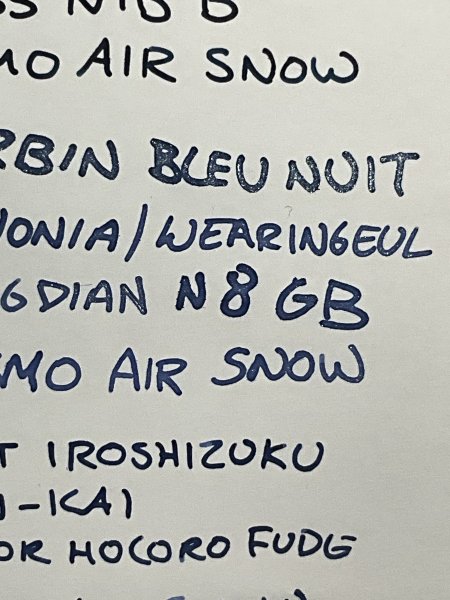 SS NIB B
MO AIR SNOW
RBIN BLEU NUIT
ONIA/WEARINGEUL
GDIAN N8 GB
MO AIR SNOW
T IROSHIZUKU
I-KAI
OR HOCORO FUDE